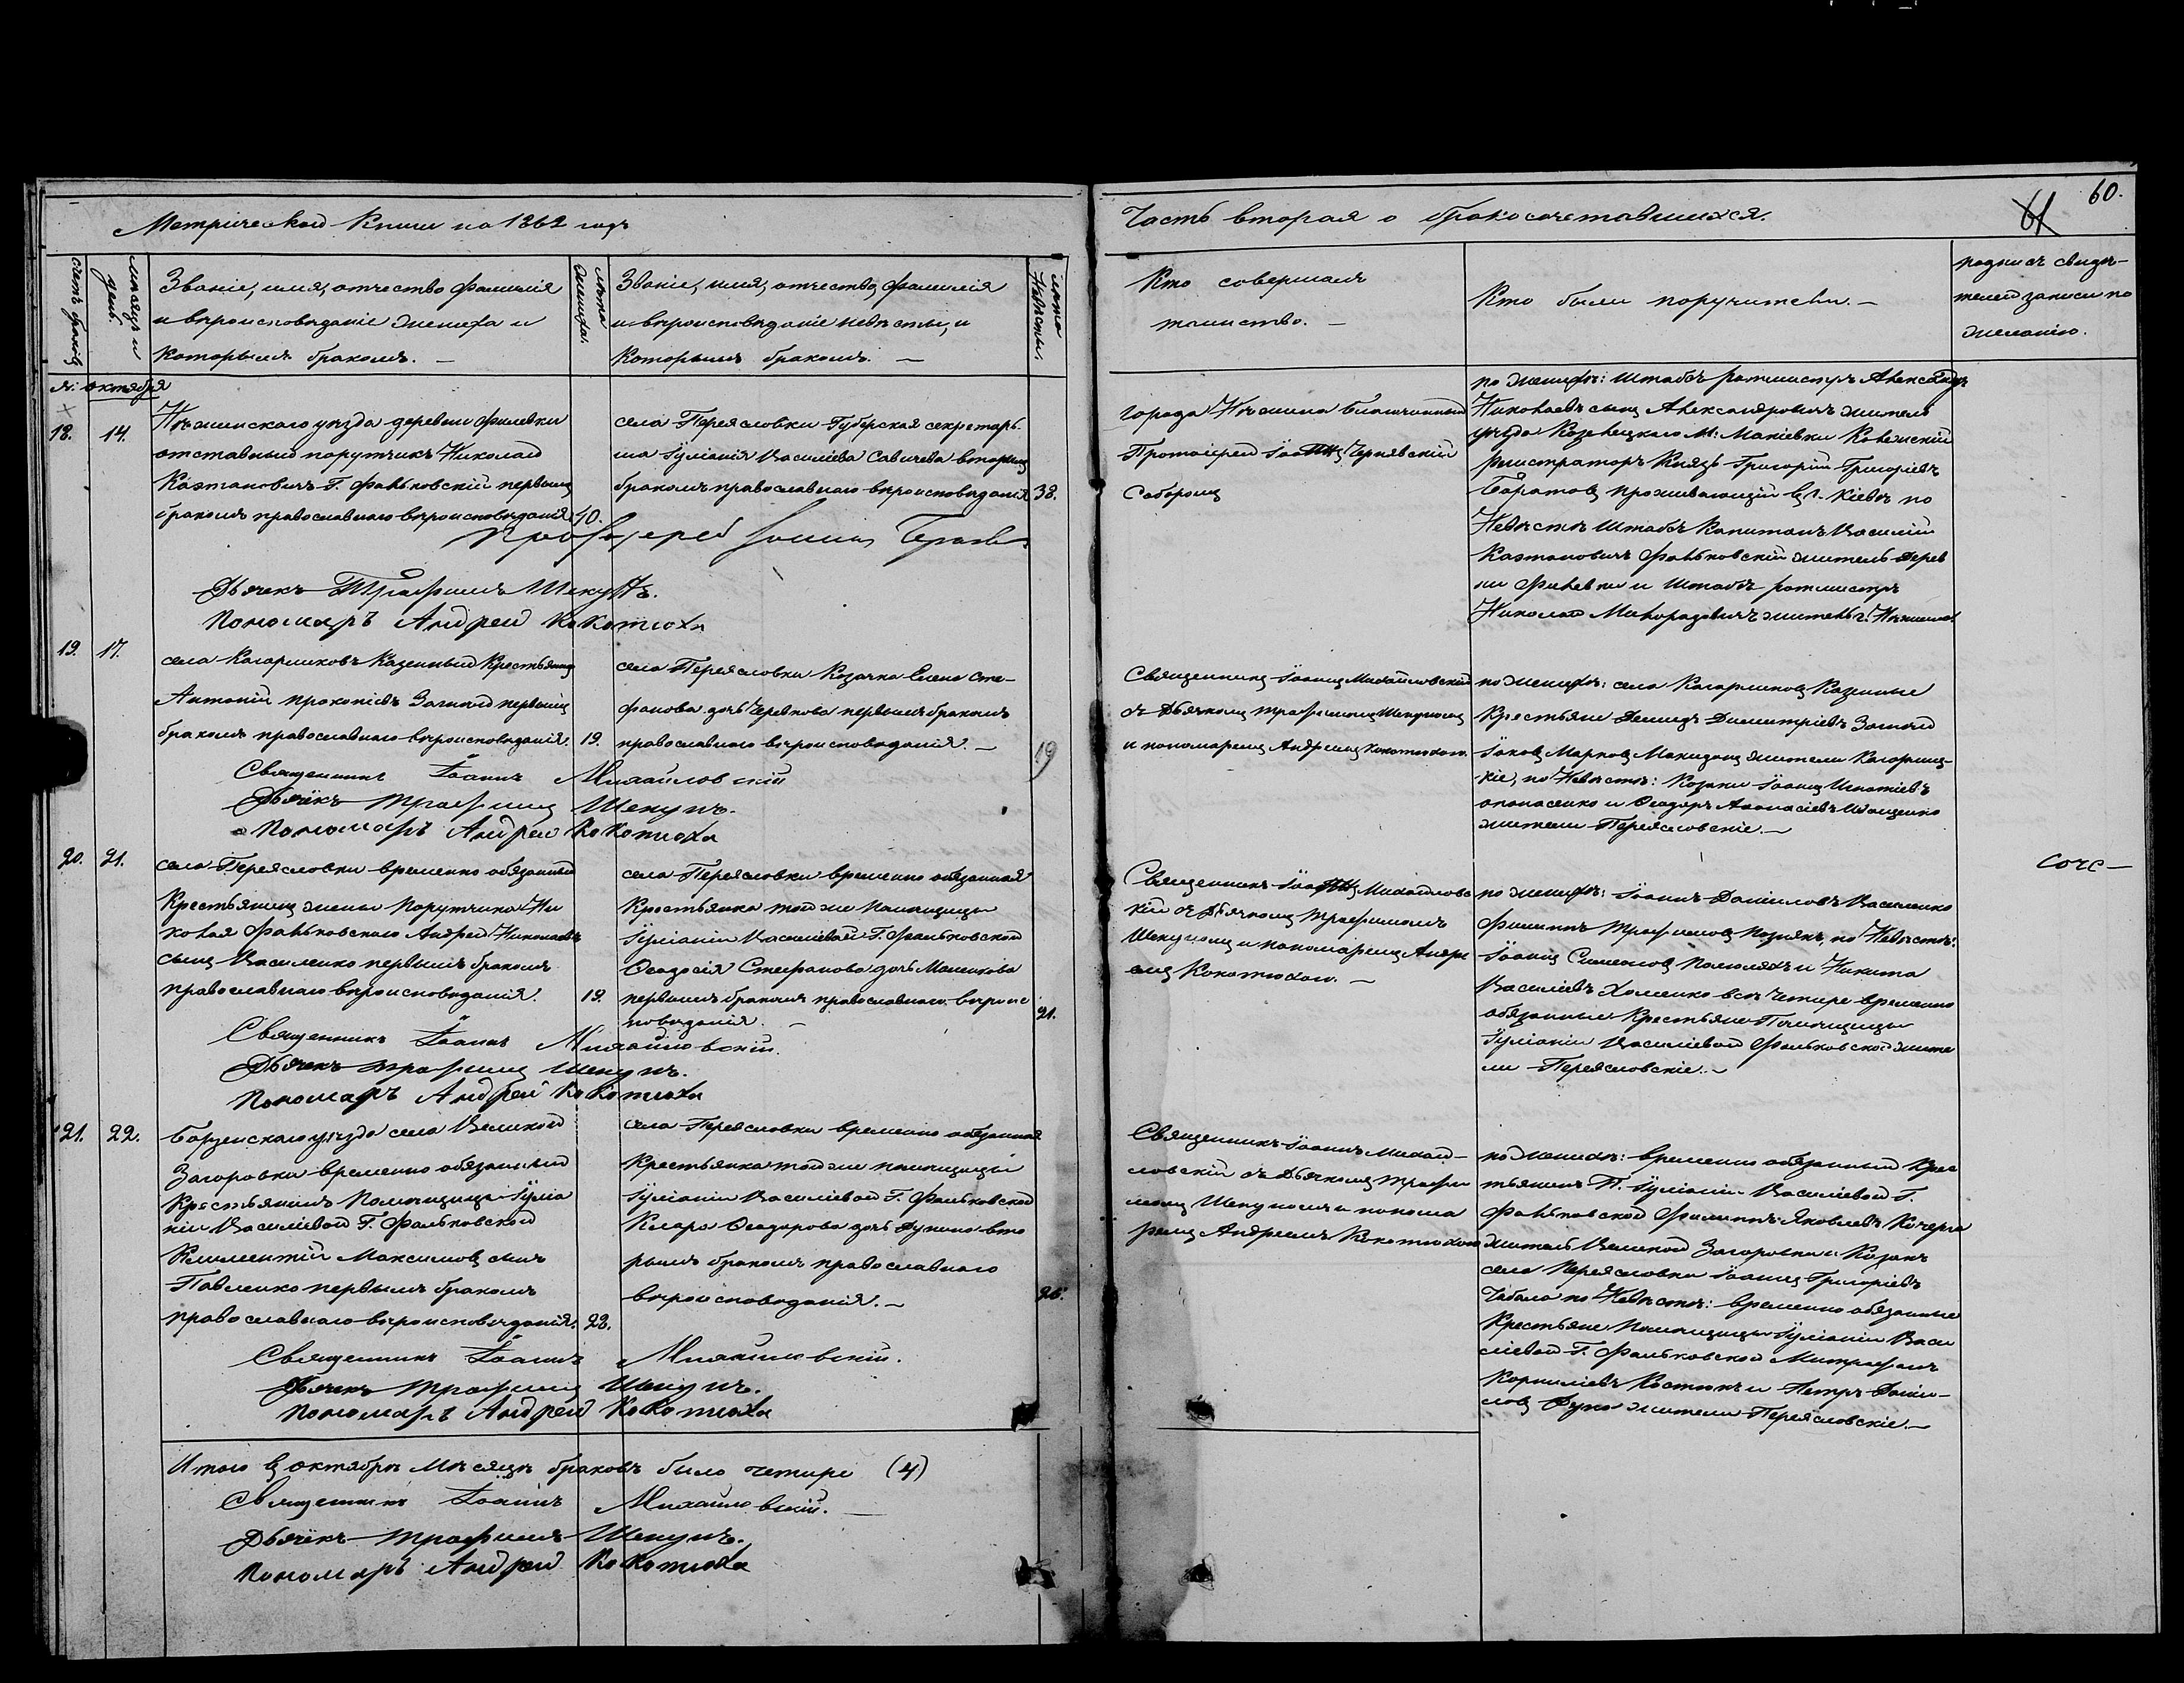 60.
61
Метрической Книги на 1862 годъ
Часть вторая о бракосочетавшихся.
счетъ браковъ
мѣсяцъ и день.
Званіе, имя, отчество фамилія
и вѣроисповѣданіе жениха и
которымъ бракомъ. —
лѣта жениха.
Званіе, имя, отчество, фамилія
и вѣроисповѣданіе невѣсты, и
которымъ бракомъ. —
лѣта Невѣсты.
Кто совершалъ
таинство. —
Кто были поручители. —
подпись свидѣ-
телей записи по
желанію.
м: октября
18. 14.
Нѣжинскаго уѣзда деревни Филевки
отставный порутчикъ Николай
Каэтановичъ Г. Фальковскій первымъ
бракомъ православнаго вѣроисповѣданія
40.
села Переясловки Губерская секретар-
ша Іуліанія Василіева Савичева вторымъ
бракомъ православнаго вѣроисповѣданія
38.
города Нѣжина Благочинный
Протоіерей Іоаннъ Чернявскій
Соборомъ
по женихѣ: штабсъ ротмистръ Александръ
Николаевъ сынъ Александровичъ житель
уѣзда Козелецкаго М: Макіевки Колежскій
регистраторъ Князь Григорій Григоріевъ
Баратовъ проживающій въ г. Кіевѣ по
Невѣстѣ Штабсъ Капитанъ Василій
Каэтановичъ Фальковскій житель дерев
ни Филевки и штабсъ ротмистръ
Николай Милорадовичъ житель г. Нѣжина.
Протоіерей Іоаннъ
Дьячекъ Трофимъ Шекунъ.
Пономаръ Андрей Кокотюха
19. 17.
села Кагарликовъ Казенный Крестьянинъ
Антоній Прокопіевъ первымъ
бракомъ православнаго вѣроисповѣданія.
19.
села Переясловки Козачка Елена Сте-
фанова дочь Черякова первымъ бракомъ
православнаго вѣроисповѣданія. —
19
Священникъ Іоаннъ Михайловскій
съ Дьячкомъ Трофимомъ Шекуномъ
и пономаремъ Андреемъ Кокотюхою.
по женихѣ: села Кагарликовъ Казенные
Крестьяне Демидъ Димитріевъ
Іаковъ Марковъ жители Кагарлиц-
кіе, по Невѣстѣ: Козаки Іоаннъ Игнатіевъ
Опанасенко и Ѳеодоръ Аѳанасіевъ Иващенко
жители Переясловскіе. —
Священникъ Іоаннъ Михайловскій
Дьячекъ Трофимъ Шекунъ.
Пономаръ Андрей Кокотюха
20. 21.
села Переясловки временно обязанный
Крестьянинъ жены Порутчика Ни
колая Фальковскаго Андрей Николаевъ
сынъ Василенко первымъ бракомъ
православнаго вѣроисповѣданія.
19.
села Переясловки временно обязанная
Крестьянка той же помѣщицы
Іуліаніи Василіевой Г. Фальковской
Ѳеодосія Стефанова дочь
первымъ бракомъ православнаго вѣроис
повѣданія. —
21.
Священникъ Іоаннъ Михайловс
кій съ Дьячкомъ Трофимомъ
Шекуномъ и пономаремъ Андре
емъ Кокотюхою. —
по женихѣ: Іоаннъ Даніиловъ Василенко
Филиппъ Трофимовъ Познякъ, по Невѣстѣ:
Іоаннъ Симеоновъ и Никита
Василіевъ Хоменко всѣ четыре временно
обязанные Крестьяне Помѣщицы
Іуліаніи Василіевой Фальковской жите
ли Переясловскіе. —
соче—
Священникъ Іоаннъ Михайловскій.
Дьячекъ Трофимъ Шекунъ.
Пономаръ Андрей Кокотюха
21. 22.
Борзенскаго уѣзда села Великой
Загоровки временно обязанный
Крестьянинъ Помѣщицы Іуліа
ніи Василіевой Г. Фальковской
Климентій Максимовъ сынъ
Павленко первымъ бракомъ
православнаго вѣроисповѣданія.
22.
села Переясловки временно обязанная
Крестьянка той же помѣщицы
Іуліаніи Василіевой Г. Фальковской
Ѳеодорова дочь вто
рымъ бракомъ православнаго
вѣроисповѣданія. —
26.
Священникъ Іоаннъ Михай-
ловскій съ Дьячкомъ Трофи
момъ Шекуномъ и понома
ремъ Андреемъ Кокотюхою
по женихѣ: временно обязанный Крес
тьянинъ П. Іуліаніи Василіевой Г.
Фальковской Филиппъ Яковлевъ Кочерга
житель Великой Загоровки и Козакъ
села Переясловки Іоаннъ Григоріевъ
Чабала по Невѣстѣ: временно обязанные
Крестьяне Помѣщицы Іуліаніи Васи
ліевой Г. Фальковской Митрофанъ
Корниліевъ Костюкъ и Петръ Дани-
ловъ Дука жители Переясловскіе. —
Священникъ Іоаннъ Михайловскій.
Дьячекъ Трофимъ Шекунъ.
Пономаръ Андрей Кокотюха
Итого въ октябрѣ мѣсяцѣ браковъ было четыре (4)
Священникъ Іоаннъ Михайловскій. —
Дьячекъ Трофимъ Шекунъ.
Пономаръ Андрей Кокотюха